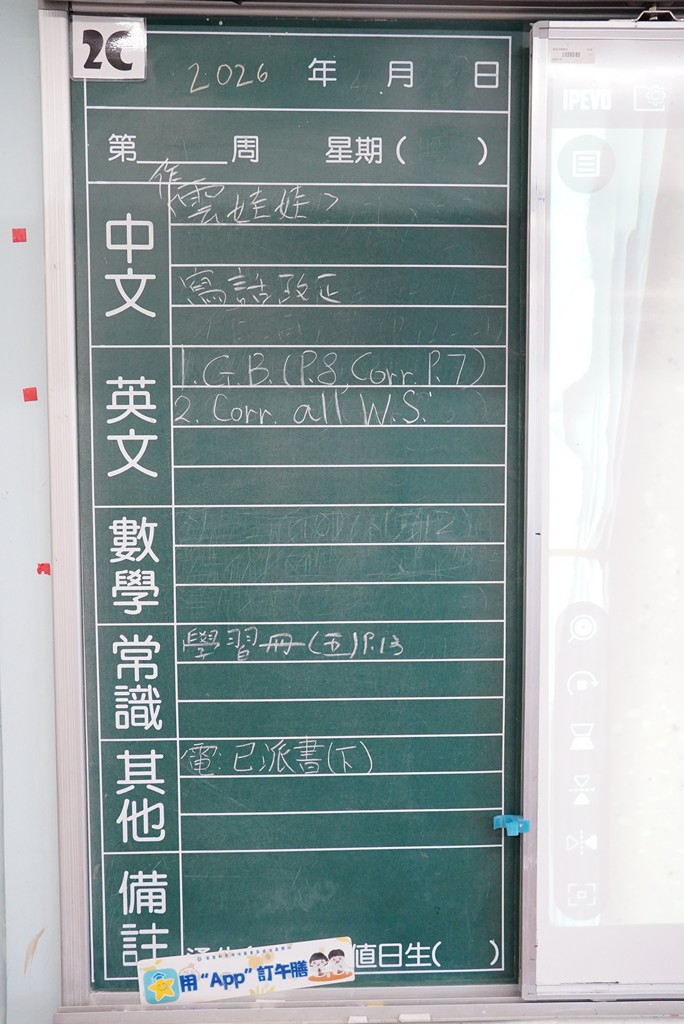 2C
2026 年 月 日
第 周 星期( )
中文
作雲娃娃>
寫話改正
英文
1. G.B. (P.8, Corr. P.7)
2. Corr. all W.S.
數學
常識
學習冊(五)P.13
其他
電:已派書(下)
備註
值日生( )
用“App”訂午膳
IPEVO